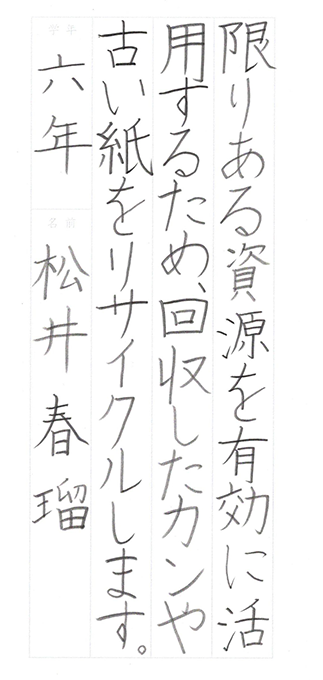 限りある資源を有効に活
用するため、回収したカンや
古い紙をリサイクルします。
学年
六年
名前
松井春瑠